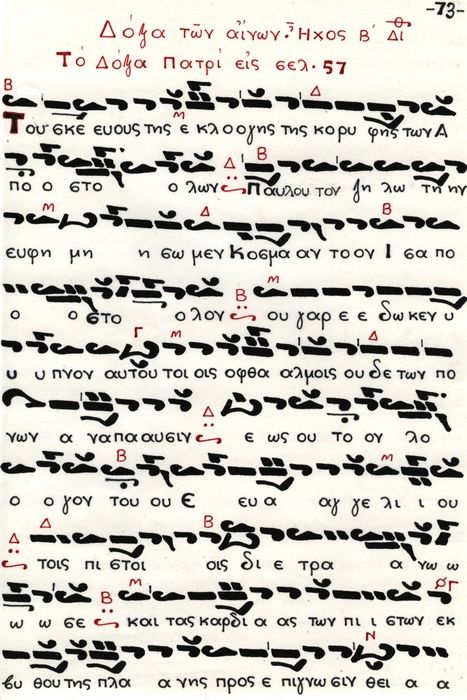 -73-
Δόξα τῶν αἴνων. Ἦχος Β΄ Δι
Τὸ Δόξα Πατρί εἰς σελ. 57
Β Μ Δ
Του σκε ευους της ε κλο ογης της κο ρυ φης των Α
Δ Β
πο ο στο ο λων Παυλου τον ζη λω τη ην
Μ Δ Β
ευφη μη η σω μεν Κοσμα αν το ον Ι σα πο
Β Μ
ο ο στο ο λον ου γαρ ε ε δω κεν υ
Γ Μ Δ
υ υ πνον αυτου τοι οις οφθα αλμοις ου δε των πο
Δ
νων α να πα αυσιν ε ως ου το ον λο
Β Μ
ο ο γον του ου Ε ευ α αγ γε λι ι ου
Δ Δ Β
τοις πι στοι οις δι ε τρα α νω ω
Β Μ Γ
ω ω σε και τας καρδι α ας των πι ι στων εκ
Ν
βυ θου της πλα α νης προς ε πιγνω σιν θει α α